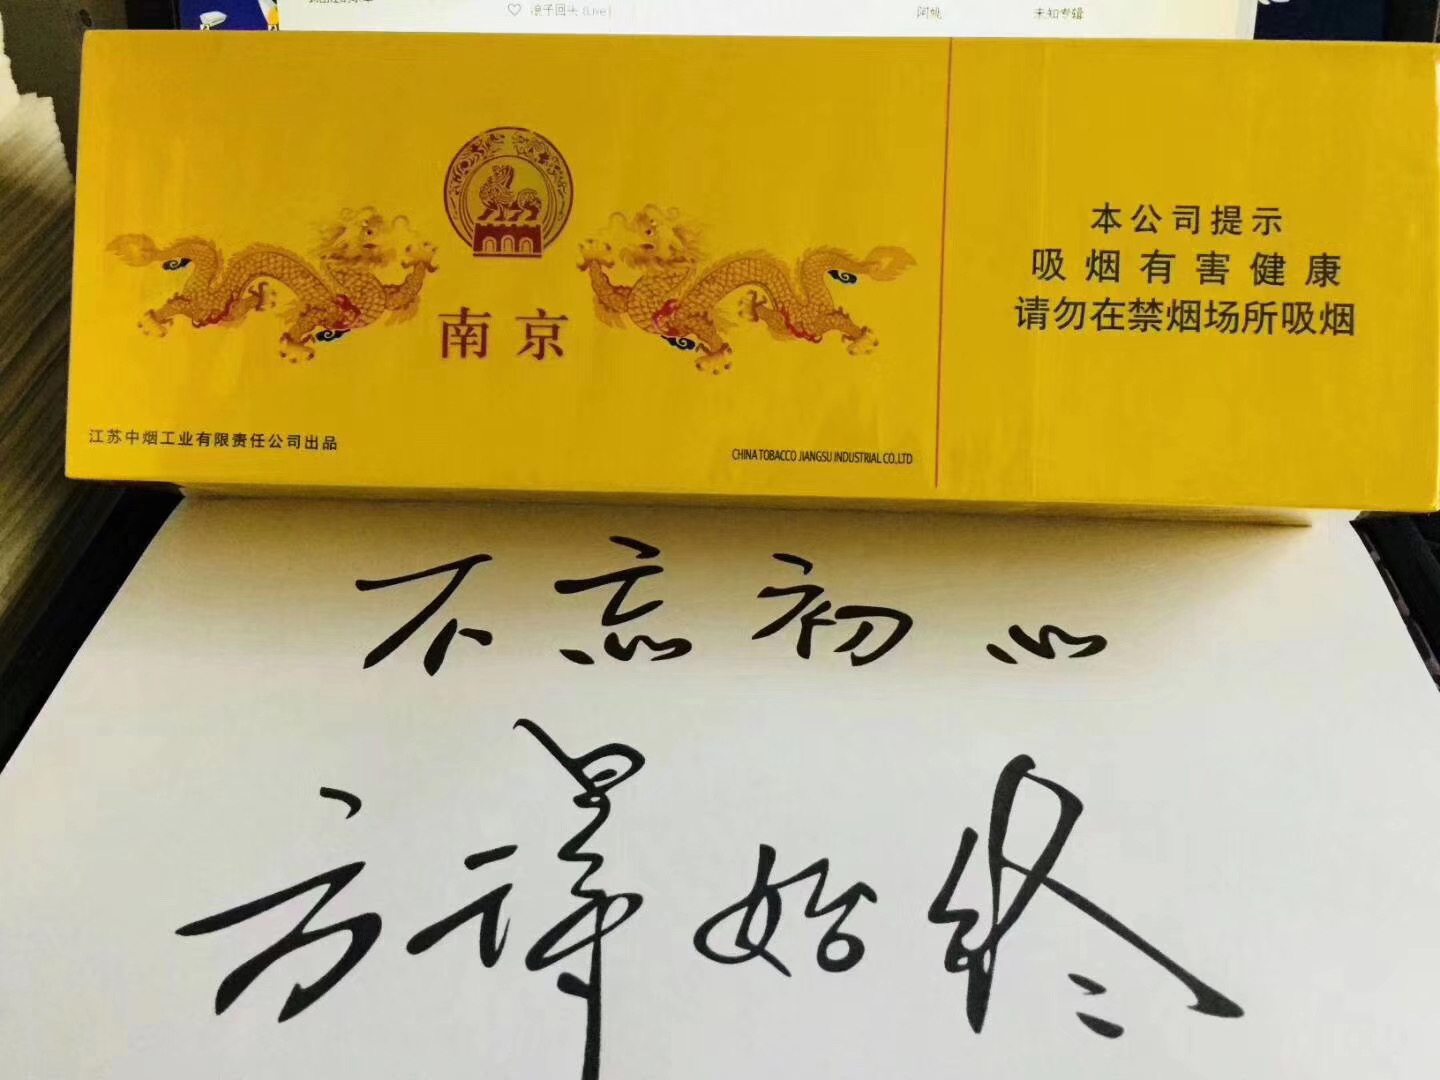 浪子回头 (Live)
阿桃
未知专辑
南京
本公司提示
吸烟有害健康
请勿在禁烟场所吸烟
江苏中烟工业有限责任公司出品
CHINA TOBACCO JIANGSU INDUSTRIAL CO.,LTD
不忘初心
方得始终